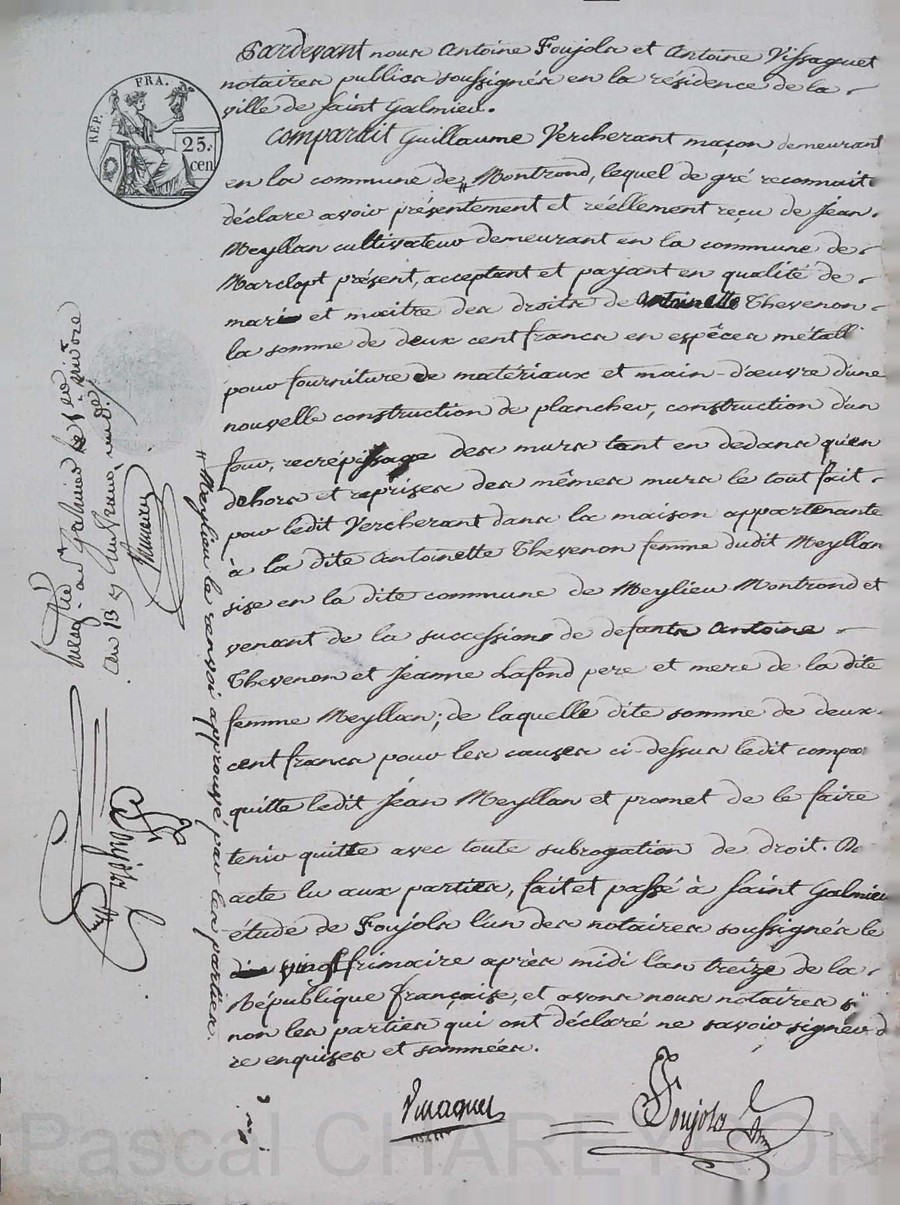 RÉP. FRA.
25.
cen
Pardevant nous Antoine Foujols et Antoine Vissaguet
notaires publics soussignés en la résidence de la
ville de Saint Galmier.
Comparait Guillaume Vercherant maçon demeurant
en la commune de " Montrond, lequel de gré reconnait
déclare avoir présentement et réellement reçu de Jean
Meyllan cultivateur demeurant en la commune de
Marclopt présent, acceptant et payant en qualité de
mari et maitre des droits de Antoinette Thevenon
la somme de deux cent francs en espèces métall
pour fourniture de matériaux et main-d'œuvre d'une
nouvelle construction de plancher, construction d'un
four, recrépissage des murs tant en dedans qu'en
dehors et reprises des mêmes murs le tout fait
pour ledit Vercherant dans la maison appartenante
à la dite Antoinette Thevenon femme dudit Meyllan
sise en la dite commune de Meylieu Montrond et
venant de la succession de defunts Antoine
Thevenon et Jeanne Lafond pere et mere de la dite
femme Meyllan; de laquelle dite somme de deux
cent francs pour les causes ci-dessus ledit compa
quitte ledit Jean Meyllan et promet de le faire
tenir quitte avec toute subrogation de droit.
acte lu aux parties, fait et passé à Saint Galmier
étude de Foujols l'un des notaires soussignés le
vingt frimaire après midi l'an treize de la
République française, et avons nous notaires s
non les parties qui ont déclaré ne savoir signer d
re enquises et sommées.
" Meylieu le renvoi approuvé par les parties.
Foujols
Vissaguet
Foujols
Pascal CHAREYRON